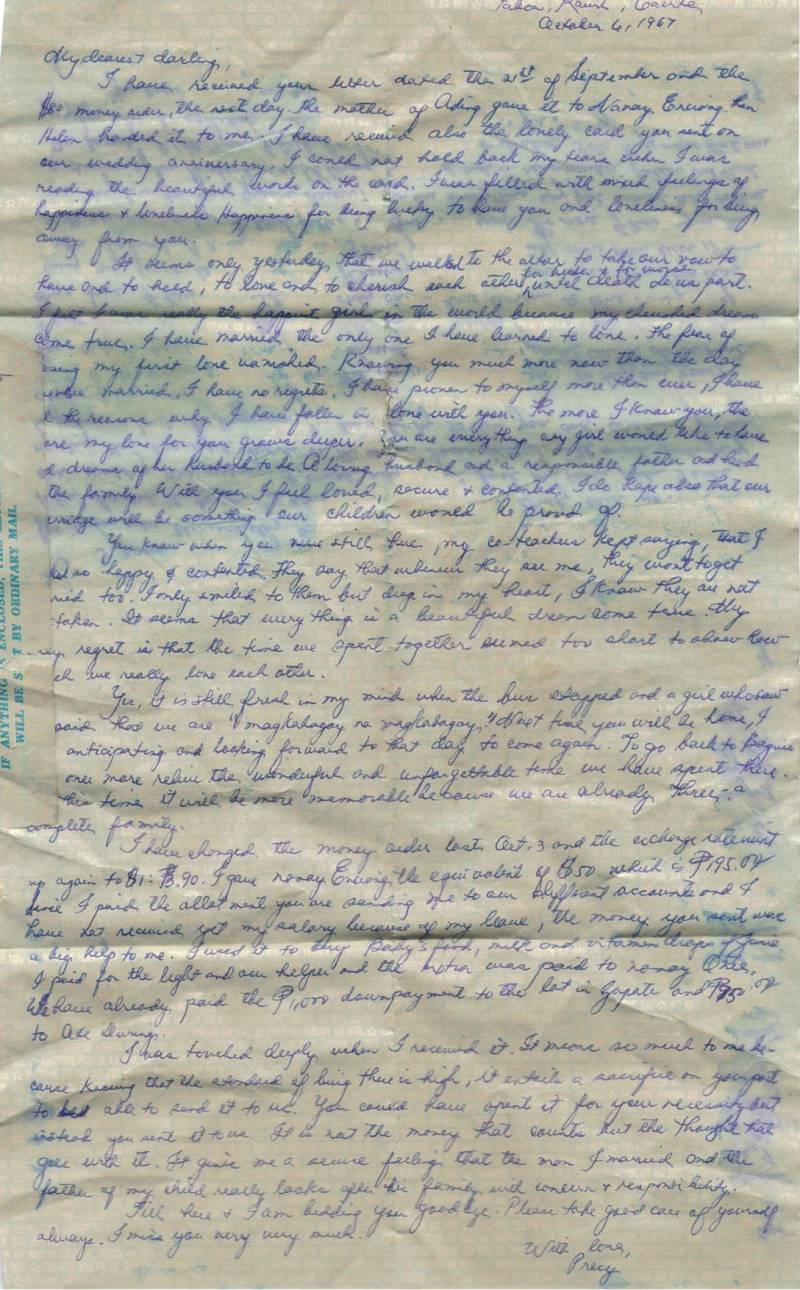 October 6, 1967
My dearest darling,
I have received your letter dated the 21st of September and the
$80 money order, the next day. The mother of Ading gave it to Nanay Enciong then
Helen handed it to me. I have received also the lonely card you sent on
our wedding anniversary. I could not hold back my tears when I was
reading the beautiful words on the card. I was filled with mixed feelings of
happiness & loneliness. Happiness for being lucky to have you and loneliness for being
away from you.
It seems only yesterday, that we walked to the altar to take our vow to
have and to hold, to love and to cherish each other for better & for worse until death do us part.
I felt I was really the happiest girl in the world because my cherished dream
come true. I have married the only one I have learned to love. The fear of
losing my first love vanished. Knowing you much more now than the day
married, I have no regrets. I have proven to myself more than ever, I have
the reasons why I have fallen in love with you. The more I know you, the
ore my love for you grows deeper. are everything any girl would like to have
& dreams of her husband to be. A loving husband and a responsible father and head
the family. With you I feel loved, secure & contented. I do hope also that our
rriage will be something our children would be proud of.
You know when you were still here, my co-teachers kept saying, that I
so happy & contented. They say that whenever they see me, they want to get
ried too. I only smiled to them but deep in my heart, I know they are not
taken. It seems that everything is a beautiful dream come true. My
regret is that the time we spent together seemed too short to show how
ch we really love each other.
Yes, it is still fresh in my mind when the bus stopped and a girl who saw
said that we are "magkabagay na magkabagay." Next time you will be home, I
anticipating and looking forward to that day to come again. To go back to Baguio
once more relive the wonderful and unforgettable time we have spent there.
this time it will be more memorable because we are already three - a
complete family.
I have changed the money order last Oct. 3 and the exchange rate went
up again to $1: ₱3.90. I gave nanay Enciong the equivalent of $50 which is ₱195.00
since I paid the allotment you are sending me to our different accounts and I
have not received yet my salary because of my leave, the money you sent was
a big help to me. I used it to buy Baby's food, milk and vitamin drops of June
I paid for the light and our helper and the was paid to nanay
We have already paid the ₱1,000 downpayment to the lot in Zapote and
to Ate
I was touched deeply when I received it. It means so much to me be-
cause knowing that the standard of living there is high, it entails a sacrifice on your part
to be able to send it to us. You could have spent it for your necessity but
instead you sent it to us. It is not the money that counts but the thought that
goes with it. It gives me a secure feeling that the man I married and the
father of my child really looks after his family with concern & responsibility.
Till here & I am bidding you goodbye. Please take good care of yourself
always. I miss you very very much.
With love,
Precy
IF ANYTHING IS ENCLOSED, THIS
WILL BE SENT BY ORDINARY MAIL